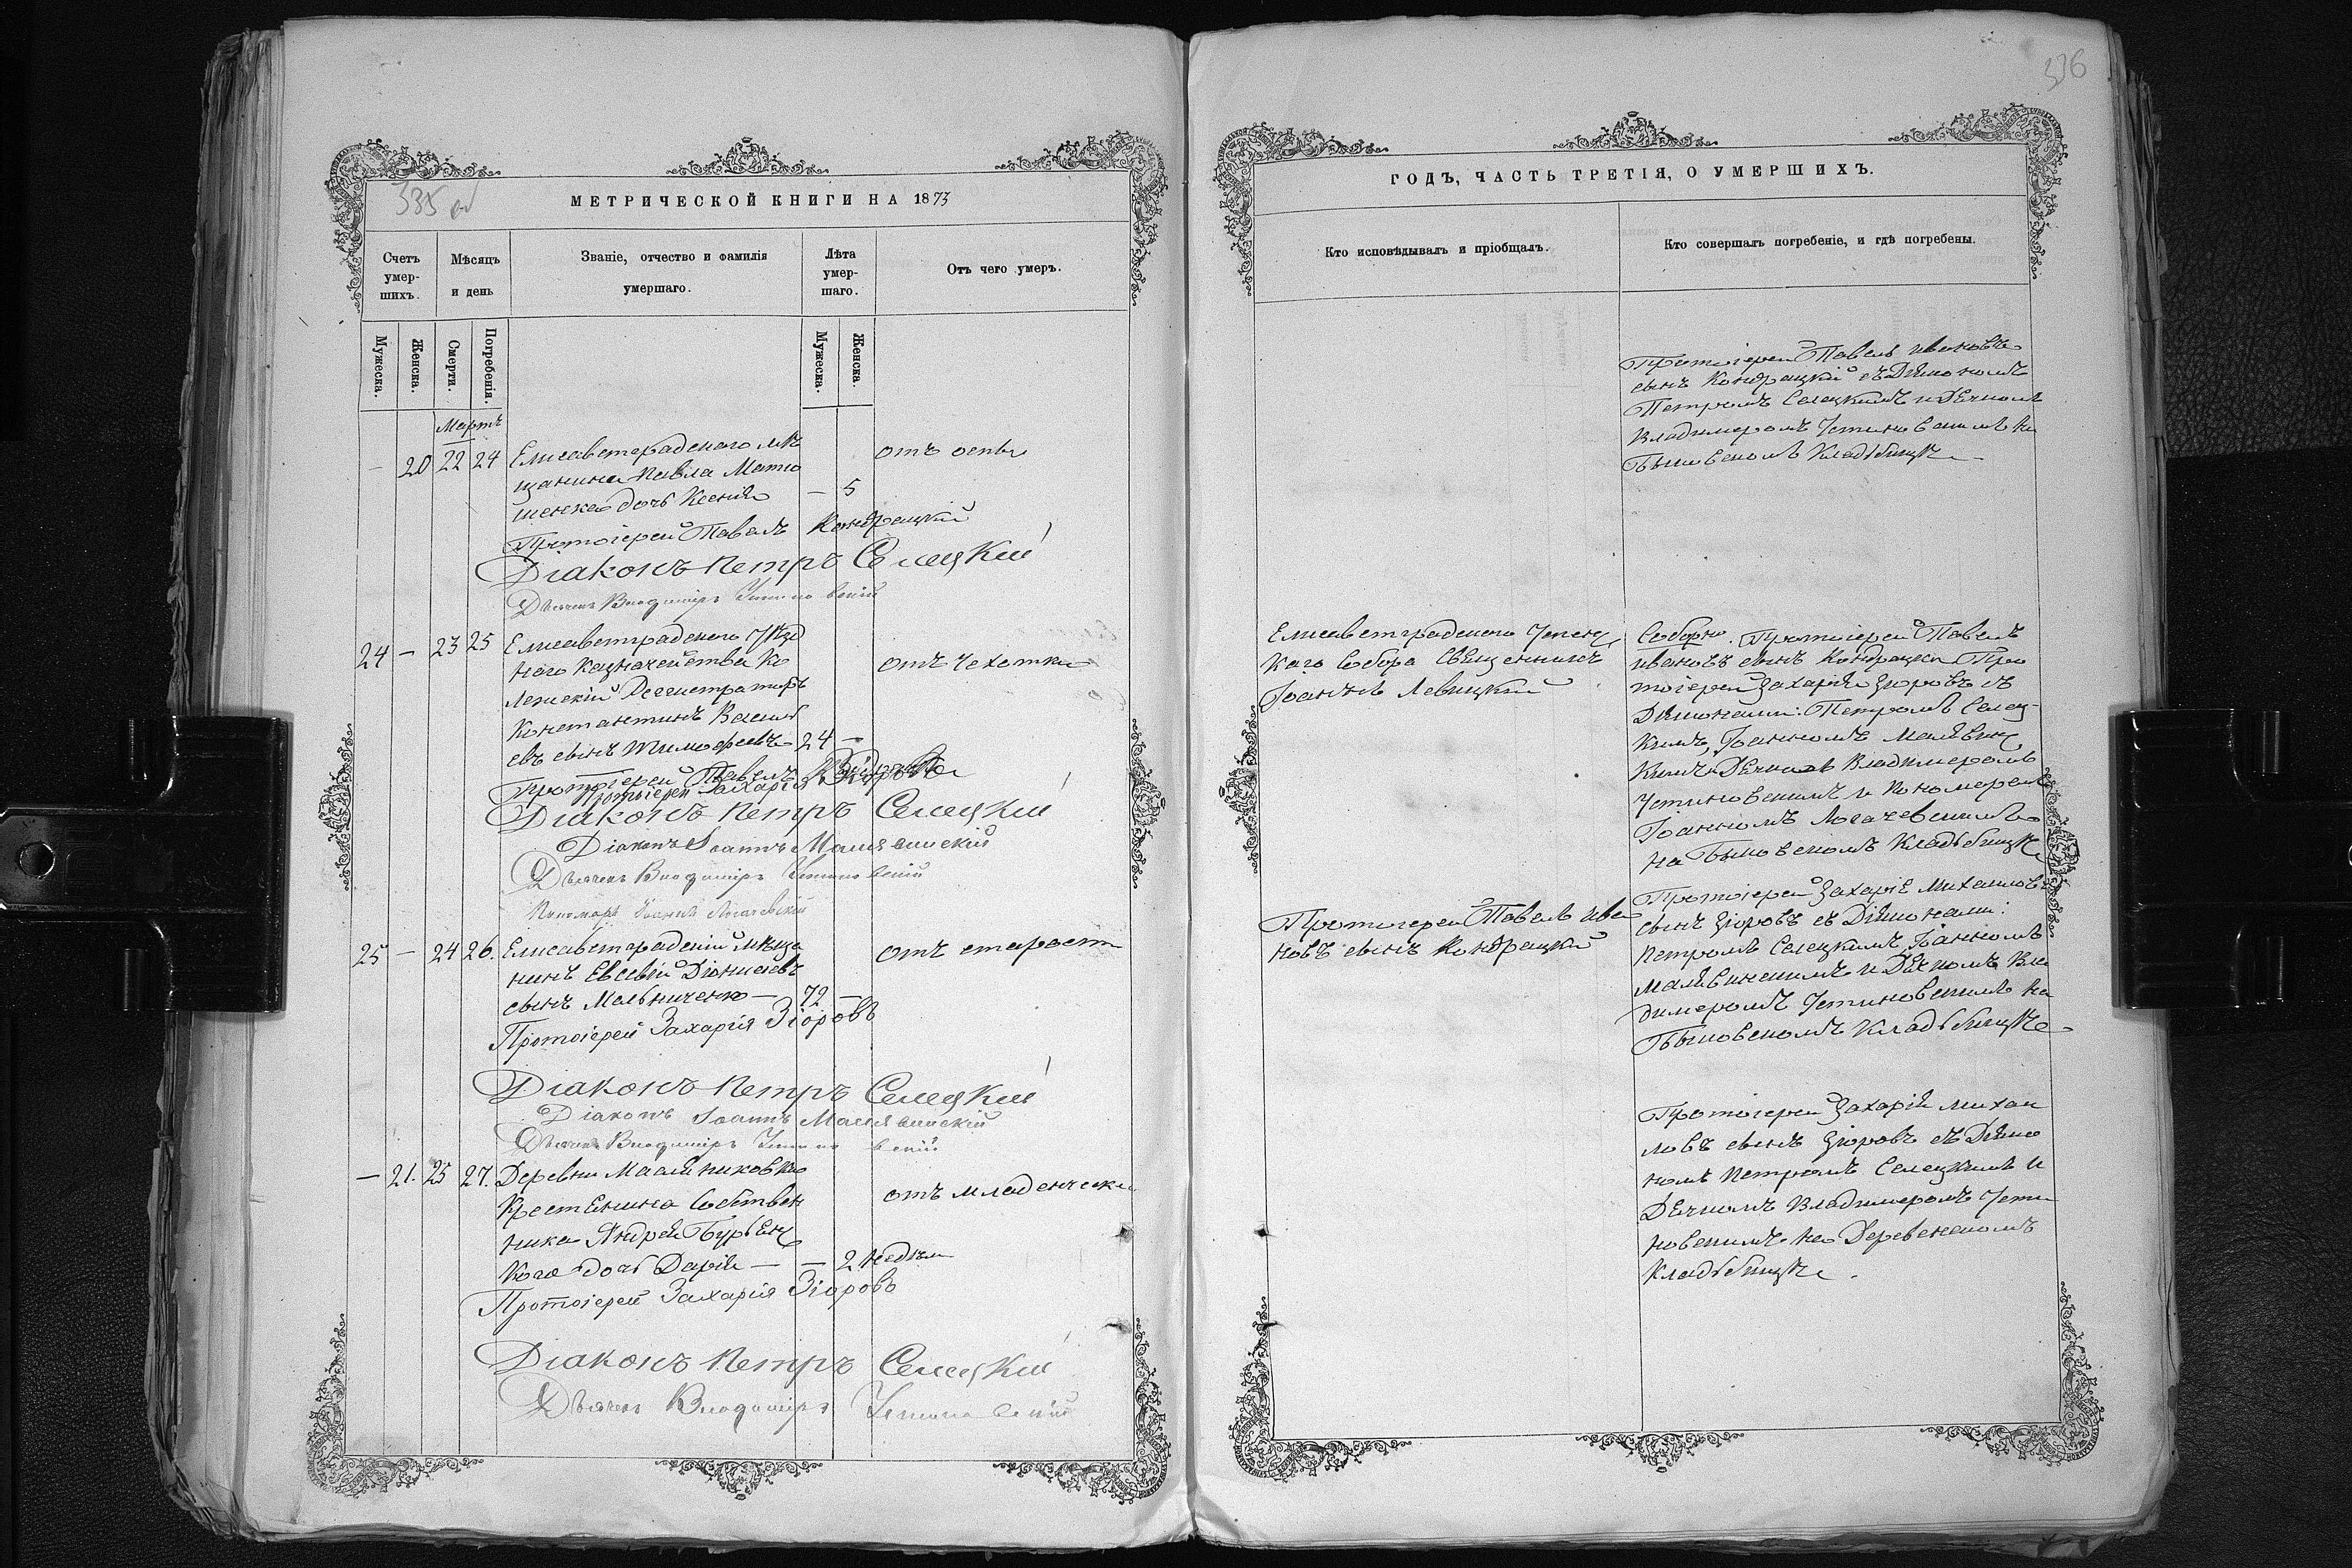 335 об
МЕТРИЧЕСКОЙ КНИГИ НА 1873
Счетъ умер-шихъ.
Мѣсяцъ и день
Званіе, отчество и фамилія умершаго.
Лѣта умер-шаго.
Отъ чего умеръ.
Мужеска.
Женска.
Смерти.
Погребенія.
Мужеска.
Женска.
Мартъ
– 20 22 24 Елисаветградскаго мѣ
щанина Павла Матю
шенка дочь Ксенія – 5
отъ оспы
Протоіерей Павелъ Кондрацкій
Діаконъ Петръ Селецкій
Дьячекъ Владиміръ Устиновскій
24 – 23 25 Елисаветградскаго Уѣзд
наго Казначейства Ко
лежскій Регистраторъ
Константинъ Василь
евъ сынъ Тимофеевъ 24 –
отъ чехотки
Протоіерей Павелъ
Протоіерей Захарія
Діаконъ Петръ Селецкій
Діаконъ Іоаннъ Малявинскій
Дьячекъ Владиміръ Устиновскій
Пономарь Іоаннъ Лосачевскій
25 – 24 26. Елисаветградскій мѣща
нинъ Евсевій Діонисіевъ
сынъ Мельниченко – 72 –
отъ старости
Протоіерей Захарія Зіоровъ
Діаконъ Петръ Селецкій
Діаконъ Іоаннъ Малявинскій
Дьячекъ Владиміръ Устиновскій
– 21. 25 27. Деревни
Крестьянина Собствен
ника Андрея
кого дочь Дарія – – 2 недѣли
отъ младенческ
Протоіерей Захарія Зіоровъ
Діаконъ Петръ Селецкій
Дьячекъ Владиміръ Устиновскій
336
ГОДЪ, ЧАСТЬ ТРЕТІЯ, О УМЕРШИХЪ.
Кто исповѣдывалъ и пріобщалъ.
Кто совершалъ погребеніе, и гдѣ погребены.
Протоіерей Павелъ Ивановъ
сынъ Кондрацкій съ Діякономъ
Петромъ Селецкимъ и Дячкомъ
Владимеромъ Устиновскимъ на
Быковскомъ Кладбищѣ
Елисаветградскаго Успенс
каго Собора Священникъ
Іоаннъ Левицкій
Соборно. Протоіерей Павелъ
Ивановъ сынъ Кондрацкій Про
тоіерей Захарій Зіоровъ съ
Діяконами: Петромъ Селец-
кимъ, Іоанномъ Малявинс
кимъ Дячкомъ Владимеромъ
Устиновскимъ и Пономаремъ
Іоанномъ Лосачевскимъ
на Быковскомъ Кладбищѣ
Протоіерей Павелъ Ива
новъ сынъ Кондрацкій
Протоіерей Захарія Михаиловъ
сынъ Зіоровъ съ Діяконами:
Петромъ Селецкимъ, Іоанномъ
Малявинскимъ и Дячкомъ Вла
димеромъ Устиновскимъ на
Быковскомъ Кладбищѣ
Протоіерей Захарія Михаи
ловъ сынъ Зіоровъ съ Діяко
номъ Петромъ Селецкимъ и
Дячкомъ Владимеромъ Усти
новскимъ на Деревенскомъ
Кладбищѣ.